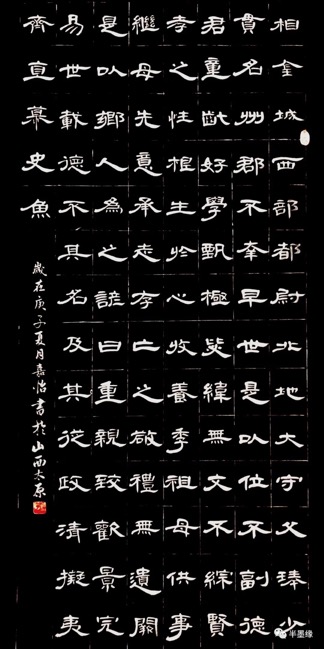 相金城西部都尉北地大守父琫少
貫名州郡不幸早世是以位不副德
君童齔好學甄極毖緯無文不綜賢
孝之性根生於心收養季祖母供事
繼母先意承志存亡之敬禮無遺闕
是以鄉人為之諺曰重親致歡景完
易世載德不其名及其從政清擬夷
齊直慕史魚
歲在庚子夏月嘉怡書於山西太原
半墨缘